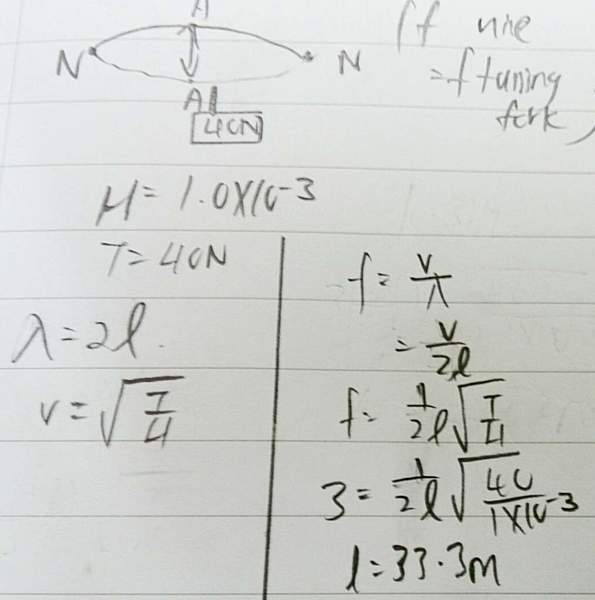 A
N N
A
40N
(f wire
= f tuning
fork)
μ = 1.0×10-3
T = 40N
λ = 2l.
v = √T/μ
f = v/λ
= v/2l
f = 1/2l √T/μ
3 = 1/2l √40/1×10-3
l = 33.3m